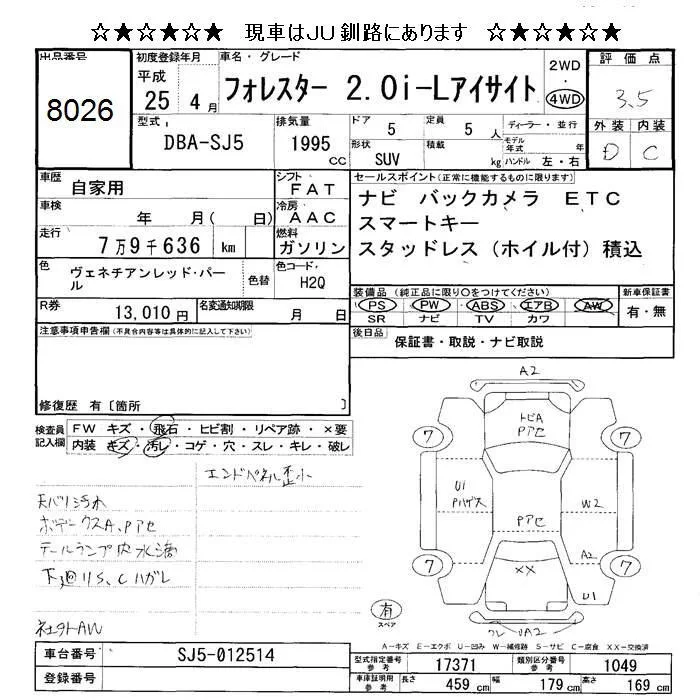 ☆★☆★☆★ 現車はJU釧路にあります ☆★☆★☆★
出品番号
8026
初度登録年月
平成
25 4月
車名・グレード
フォレスター 2.0i-Lアイサイト
2WD
・
4WD
評価点
3.5
外装 内装
D C
型式
DBA-SJ5
排気量
1995
cc
ドア 5
定員 5 人
形状
SUV
積載
kg
ディーラー・並行
モデル年式 年
ハンドル 左・右
車歴
自家用
シフト
FAT
車検
年 月( 日)
冷房
AAC
走行
7万9千636 km
燃料
ガソリン
色
ヴェネチアンレッド・パール
色替
色コード
H2Q
R券
13,010円
名変通知期限
月 日
セールスポイント(正常に機能するものに限ります)
ナビ バックカメラ ETC
スマートキー
スタッドレス(ホイル付)積込
装備品(純正品に限り○をつけてください)
PS PW ABS エアB AW
SR ナビ TV カワ
新車保証書
有・無
後日品
保証書・取説・ナビ取説
注意事項申告欄(不具合内容等は具体的に記入して下さい)
修復歴 有〔箇所 〕
検査員記入欄
FW キズ・飛石・ヒビ割・リペア跡・×要
内装 キズ・汚レ・コゲ・穴・スレ・キレ・破レ
エンドパネル歪小
天バリ汚れ
ボデークスA、Pアセ
テールランプ内水滴
下廻りS、Cハガレ
社外AW
A2
トビA
Pアセ
7 7
U1
Pハゲス
W2
Pアセ
A2
7 7
XX
U1
UA2
有
スペア
A-キズ E-エクボ U-凹み W-補修跡 S-サビ C-腐食 XX-交換済
車台番号
SJ5-012514
登録番号
型式指定番号
参考
17371
類別区分番号
参考
1049
車庫証明用
参考
長さ 459 cm
幅 179 cm
高さ 169 cm